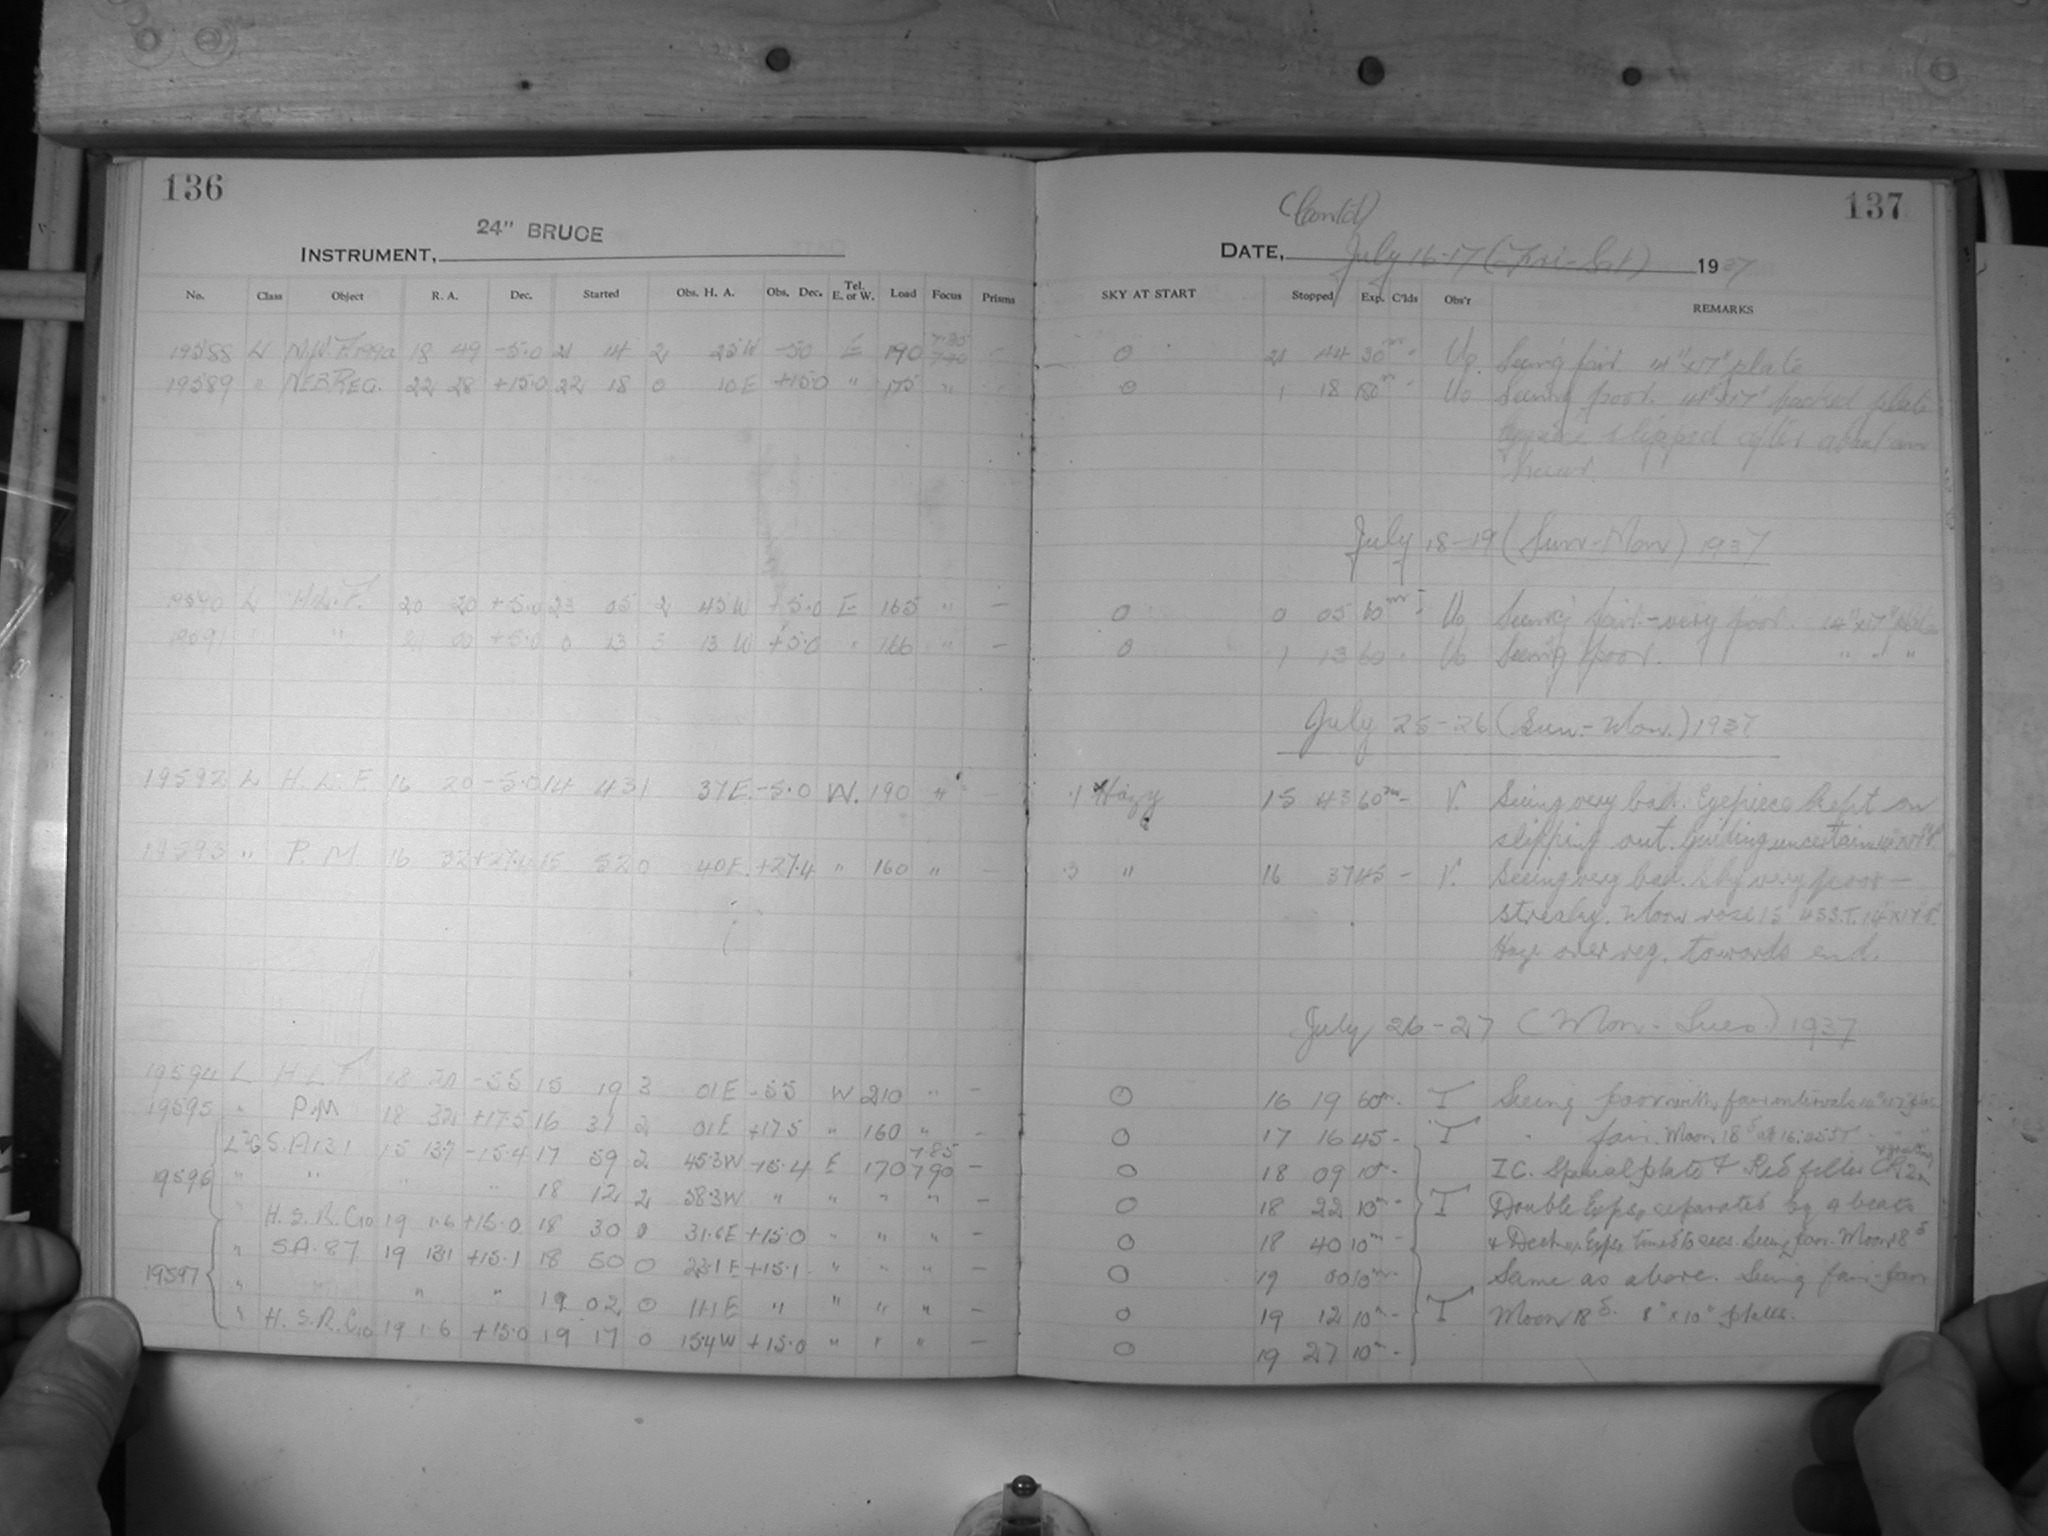 136
24" BRUCE
INSTRUMENT,
No. Class Object R. A. Dec. Started Obs. H. A. Obs. Dec. Tel. E. or W. Load Focus Prisms
19588 L 18 49 -5.0 21 14 2 25 W -5.0 E 190 7.90 -
19589 " NEB REG. 22 28 +15.0 22 18 0 10 E +15.0 " 175 "
19590 L H.L.F. 20 20 +5.0 23 05 2 45 W +5.0 E 165 " -
19591 " " 21 00 +5.0 0 13 3 13 W +5.0 " 166 " -
19592 L H. L. F. 16 20 -5.0 14 43 1 37 E. -5.0 W. 190 " -
19593 " P. M 16 32 +27.4 15 52 0 40 E. +27.4 " 160 " -
19594 L H L F 18 20 -55 15 19 3 01 E -55 W 210 " -
19595 " P.M 18 32 +17.5 16 31 2 01 E +17.5 " 160 " -
L-G S.A 131 15 13.7 -15.4 17 59 2 45.3 W -15.4 E 170 7.85 7.90 -
19596 " " " " 18 12 2 58.3 W " " " " -
" H. S. R. C10 19 1.6 +15.0 18 30 0 31.6 E +15.0 " " " -
" S.A. 87 19 13.1 +15.1 18 50 0 23.1 E +15.1 " " " -
19597 " " " 19 02 0 11.1 E " " " " -
" H. S. R. C10 19 1.6 +15.0 19 17 0 15.4 W +15.0 " " " -
137
(Contd)
DATE, July 16-17 (Fri-Sat) 1937
SKY AT START Stopped Exp. C'lds Obs'r REMARKS
0 21 44 30m - Uo Seeing fair. 14"x17" plate
0 1 18 180m - Uo Seeing poor. 14"x17" plate
slipped after about an
hour.
July 18-19 (Sun-Mon) 1937
0 0 05 60m - Uo Seeing fair-very poor. 14"x17" plate
0 1 13 60 " Uo Seeing poor. " " "
July 25-26 (Sun.-Mon.) 1937
.1 Hazy 15 43 60m - V. Seeing very bad. Eyepiece kept on
slipping out. Guiding uncertain. 14"x17"
.3 " 16 37 45 - V. Seeing very bad. Sky very poor -
streaky. Moon rose 15 45 S.T. 14"x17"
Haze over reg. towards end.
July 26-27 (Mon-Tues) 1937
0 16 19 60m - I Seeing poor with fair intervals 14"x17" plate
0 17 16 45 - I " fair. Moon 18d at 16:45 ST
0 18 09 10m - I.C. Special plate & Red filter
0 18 22 10m - I Double Exps. separated by 4 beats
0 18 40 10m - Seeing fair. Moon 18d
0 19 00 10m - Same as above. Seeing fair-poor
0 19 12 10m - I Moon 18d. 8" x 10" plates.
0 19 27 10m -